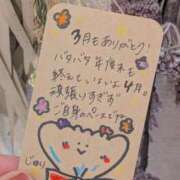 3月もありがとう!
バタバタ年度末も
終えていよいよ4月。
頑張りすぎず
ご自身のペースでネ
じゅり